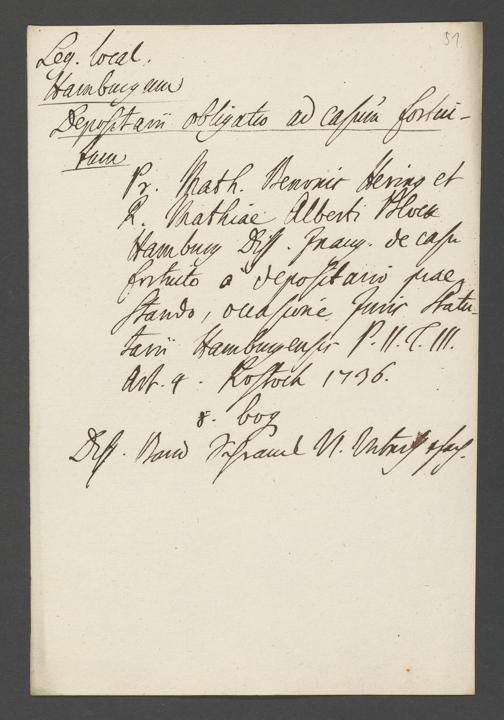 51
Leg. local.
Hamburgum
Depositarii obligatio ad casum fortui-
tum
Pr. Math. Benonis Hering et
R. Mathiae Alberti Block
Hamburg Diss. Inaug. de casu
fortuito a depositario prae
stando, occasione Juris Statu-
tarii Hamburgensis P. II. T. III.
Art. 4. Rostock 1736.
8. bog
Diss. Band VI.